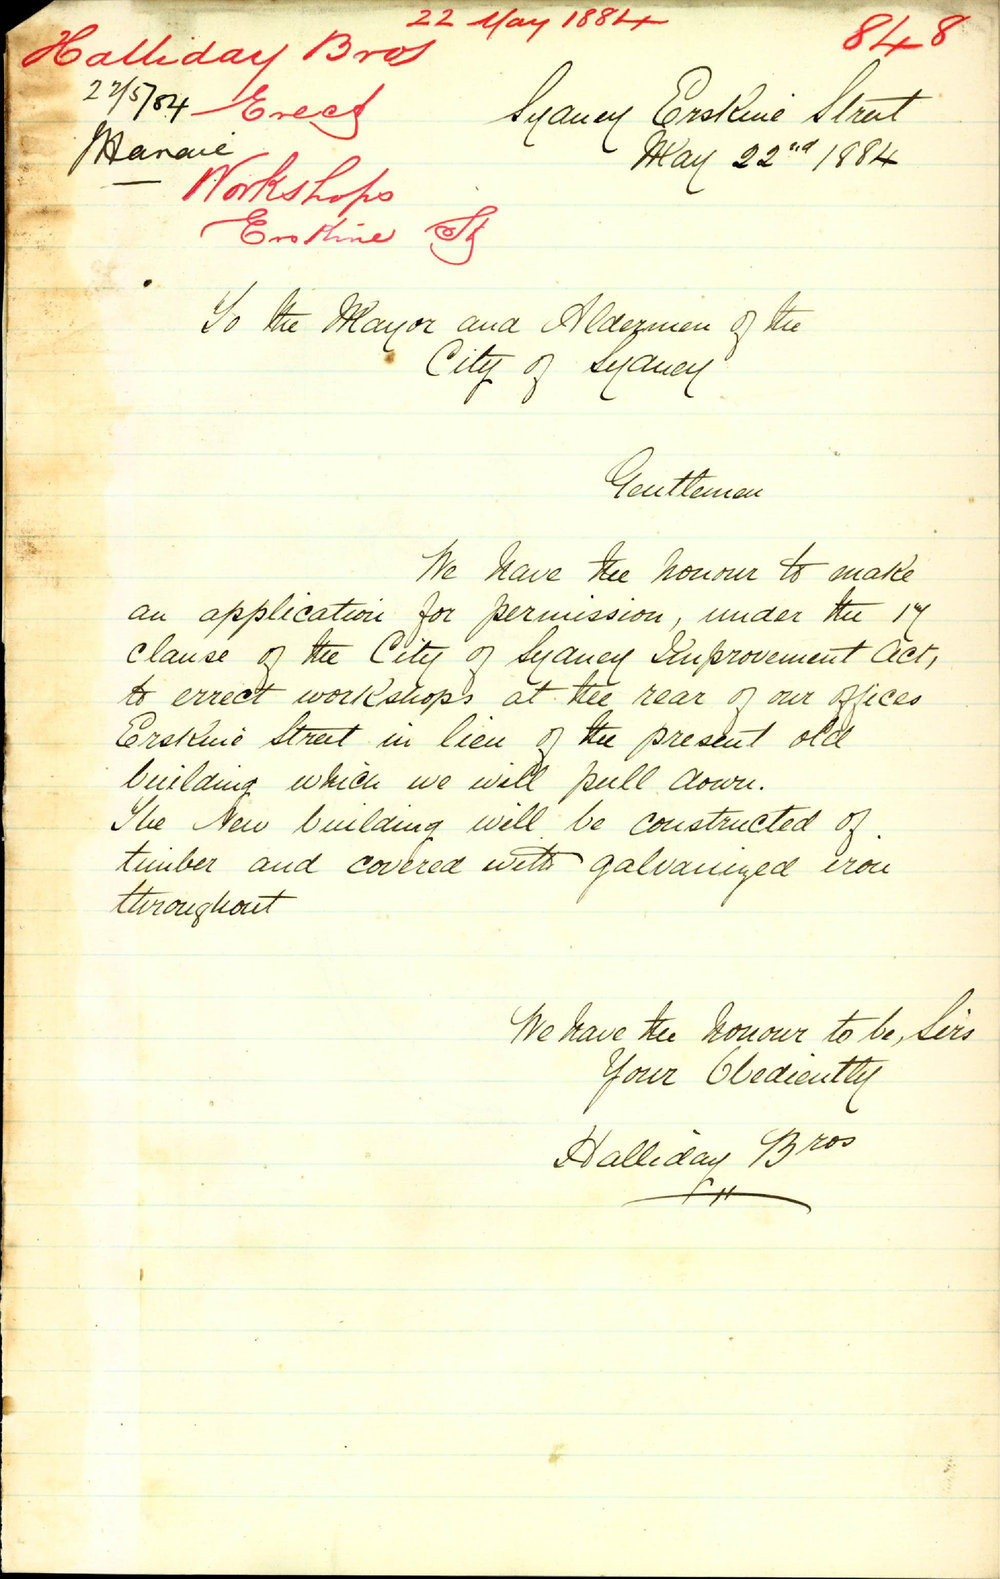 22 May 1884
848
Halliday Bros
22/5/84 Erect
Workshops
Erskine St
Sydney Erskine Street
May 22nd 1884
To the Mayor and Aldermen of the
City of Sydney
Gentlemen
We have the honour to make
an application for permission, under the 17
clause of the City of Sydney Improvement Act,
to errect workshops at the rear of our offices
Erskine Street in lieu of the present old
building which we will pull down.
The New building will be constructed of
timber and covered with galvanized iron
throughout
We have the honour to be, Sirs
Your Obediently
Halliday Bros